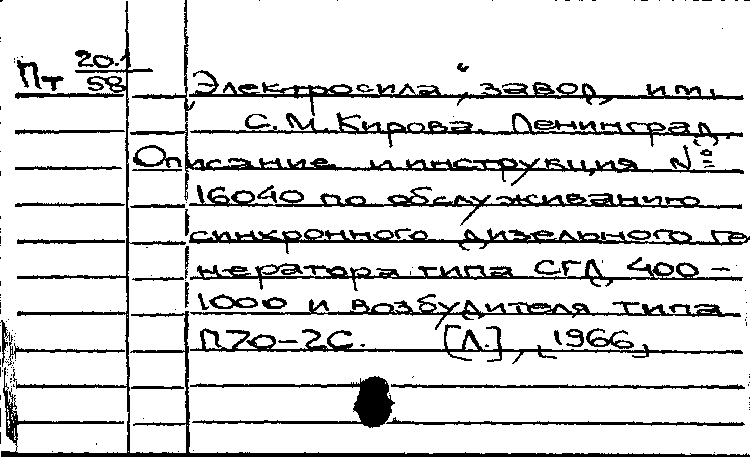 Пт 20.1
58
„Электросила“, завод, им.
С.М. Кирова. Ленинград.
Описание и инструкция №
16040 по обслуживанию
синхронного дизельного ге-
нератора типа СГД 400-
1000 и возбудителя типа
П70-2С. [Л.], [1966]